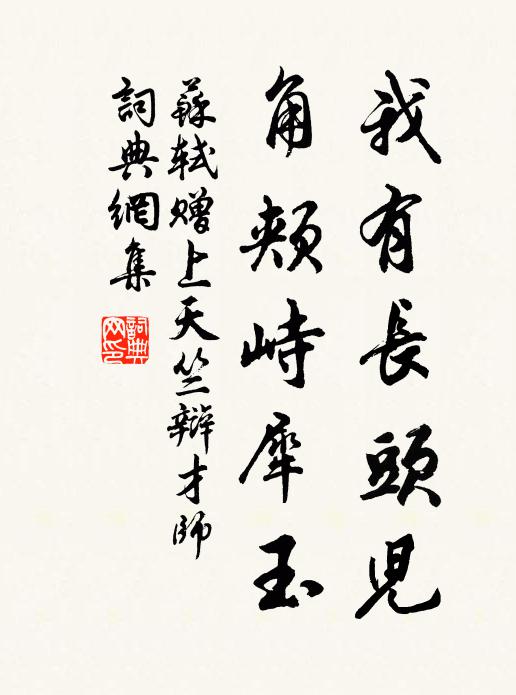 我有長頭兒
角頰峙犀玉
蘇軾贈上天竺辯才師
詞典網集
詞典
网印